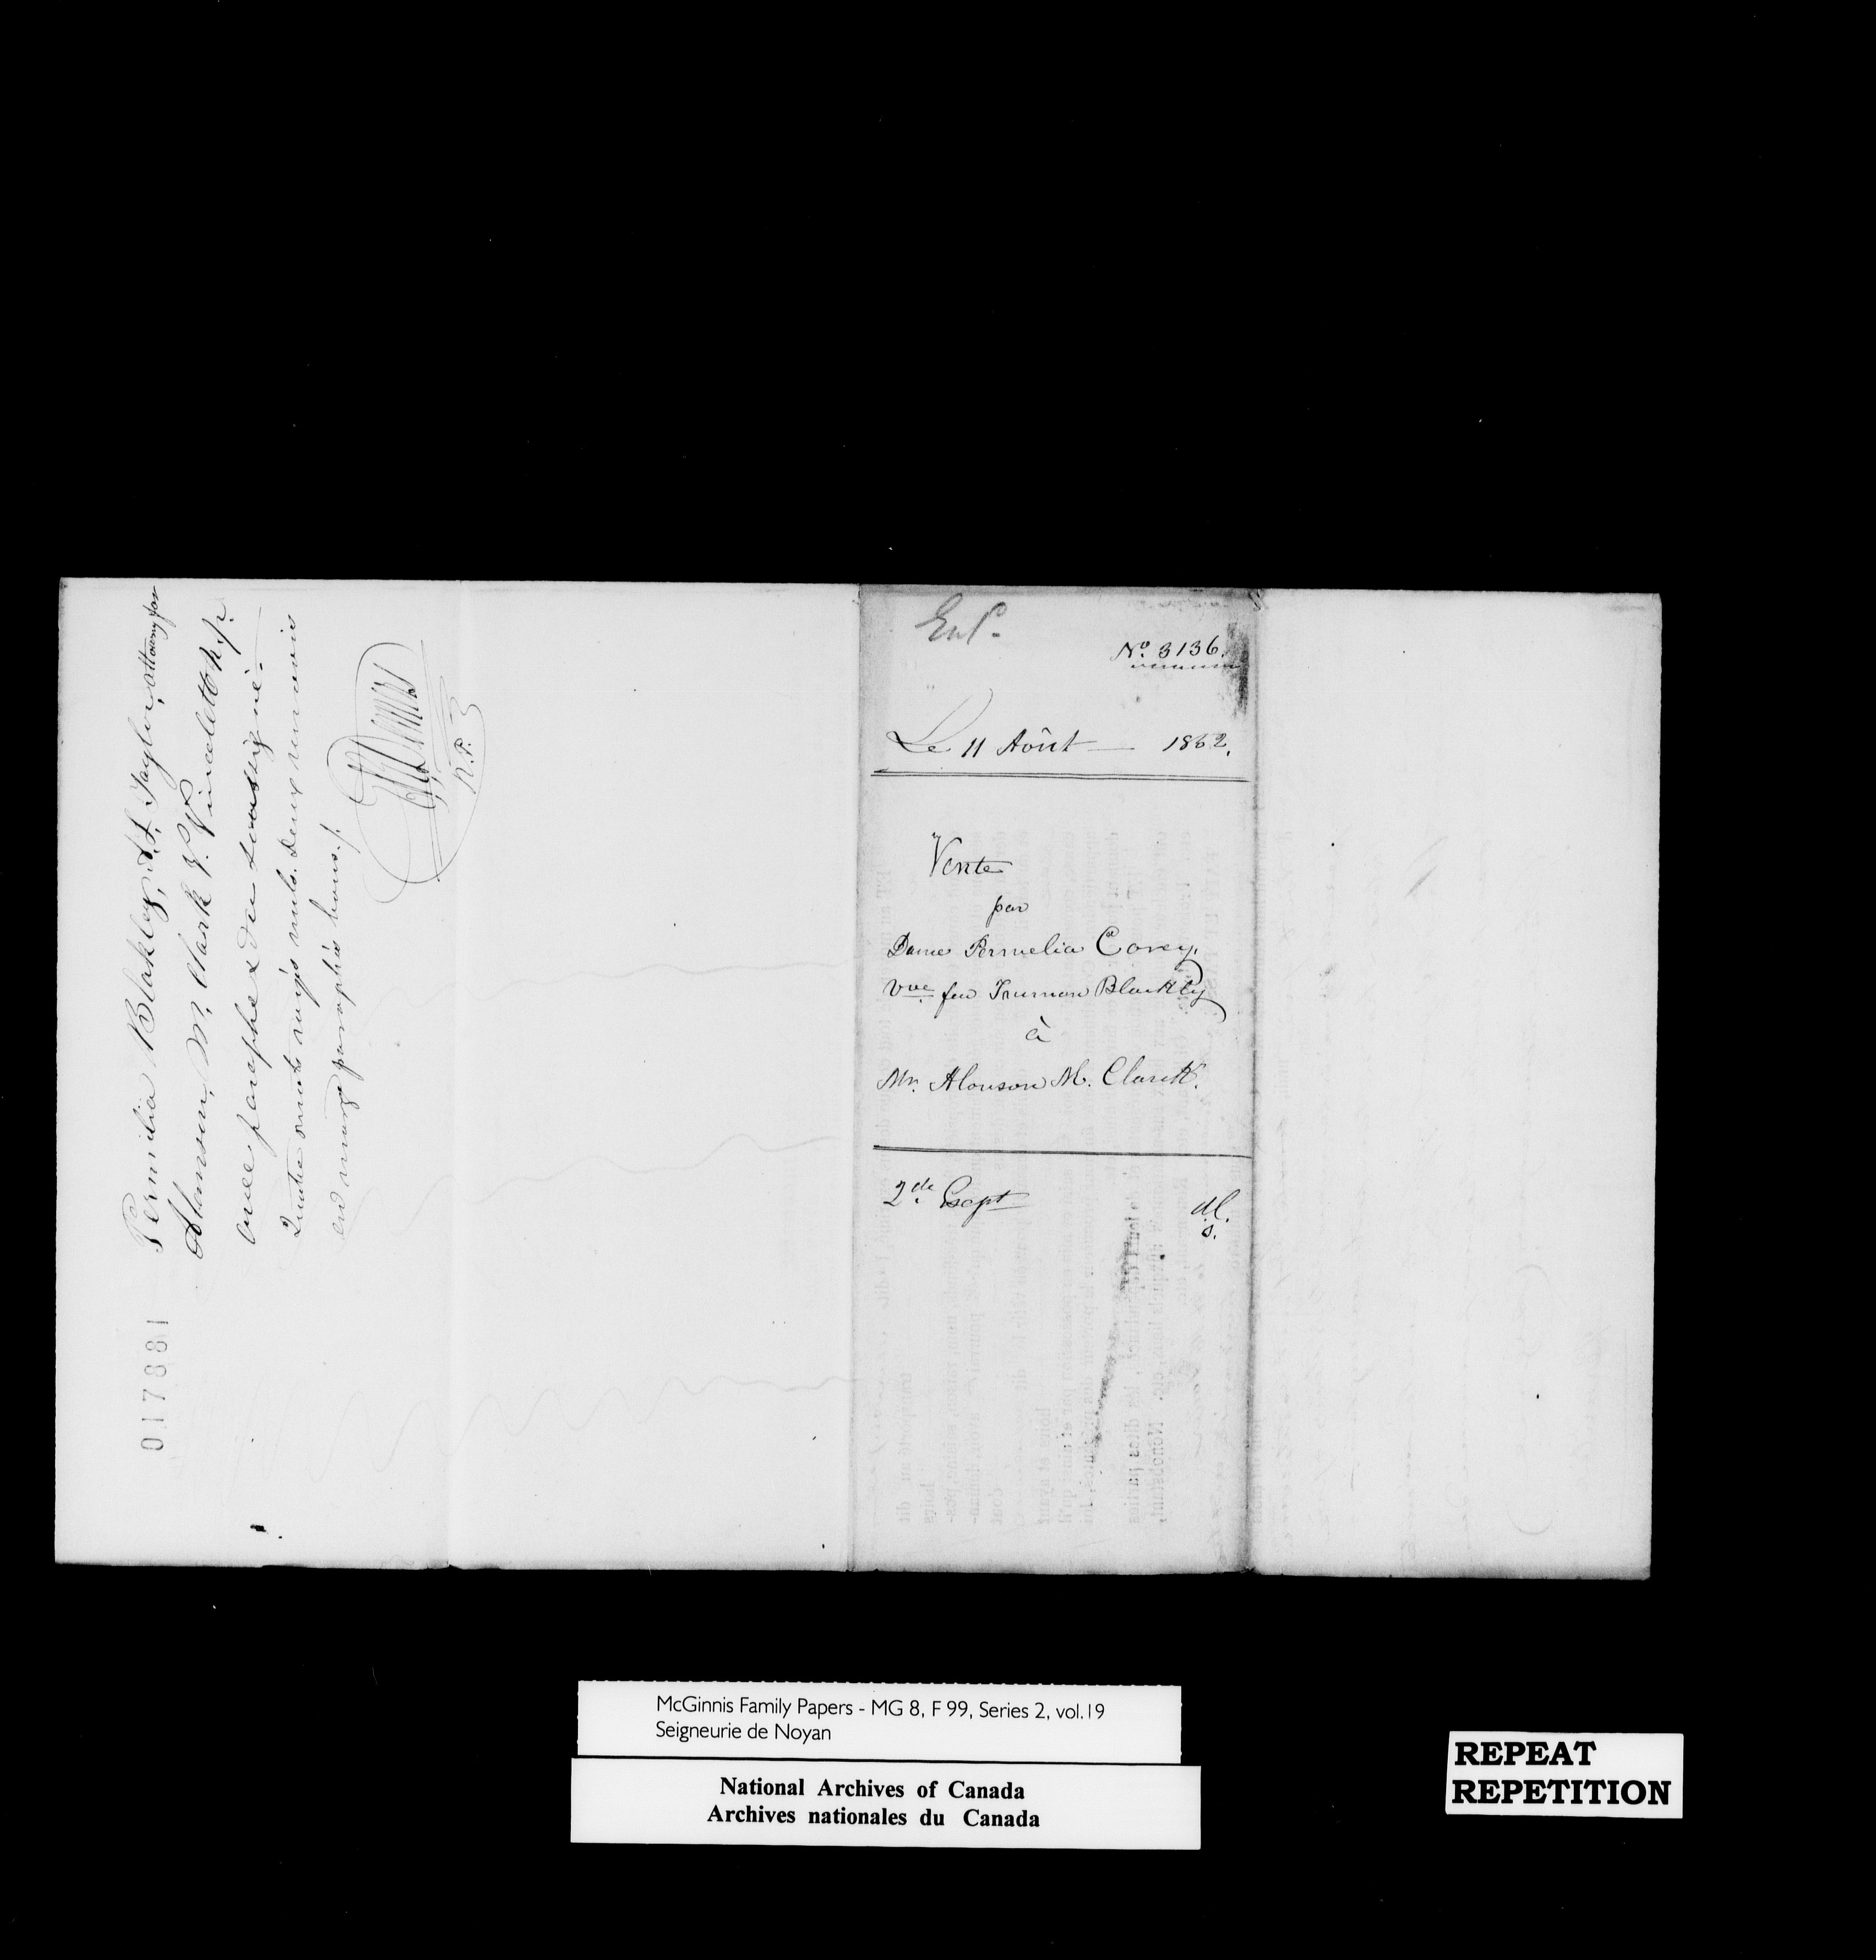 Permilia Blakley, A. L. Taylor, attorney for
Alanson, M, Clark V. Vincelette N.P.
avec paraphe & du soussigné.
Quatre mots rayés nuls. Deux renvois
en marge paraphés bons./.
N.P.
017881
Enr.
No. 3136.
Le 11 Août — 1862.
Vente
par
Dame Permelia Corey,
Vve feu Truman Blackly
à
Mr. Alonson M. Clark.
2de Exept
dl.
s.
McGinnis Family Papers - MG 8, F 99, Series 2, vol.19
Seigneurie de Noyan
National Archives of Canada
Archives nationales du Canada
REPEAT
REPETITION